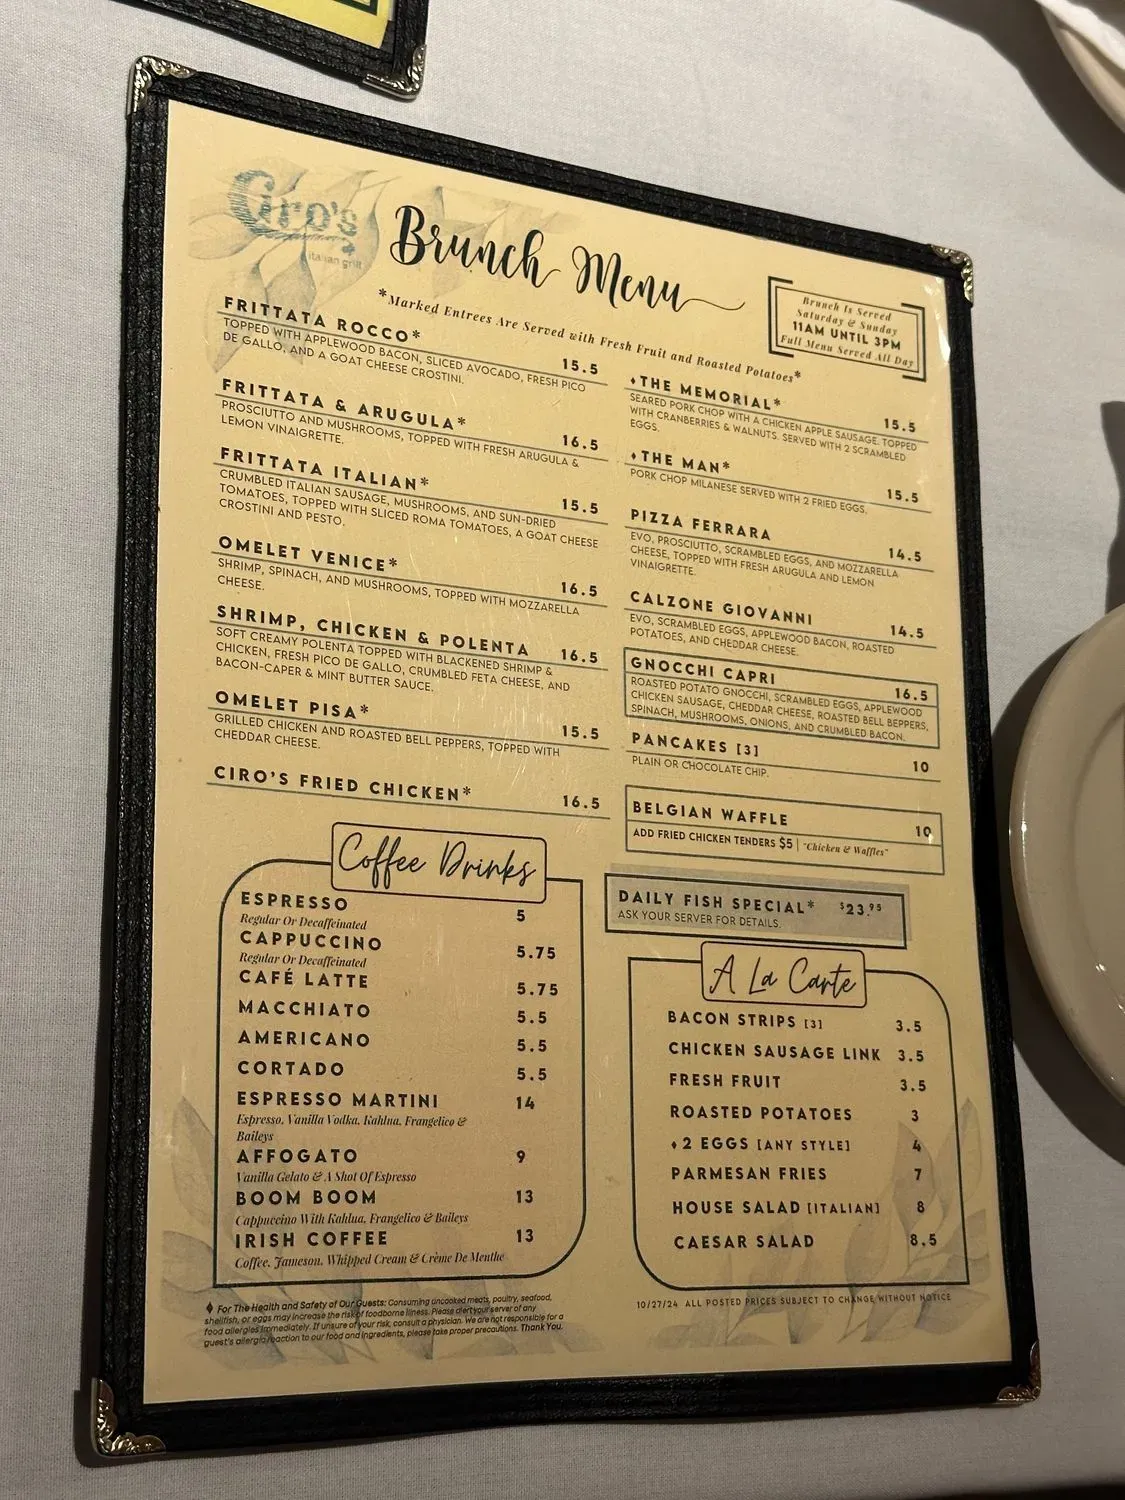 Ciro's
italian grill
Brunch Menu
*Marked Entrees Are Served with Fresh Fruit and Roasted Potatoes*
Brunch Is Served
Saturday & Sunday
11AM UNTIL 3PM
Full Menu Served All Day
FRITTATA ROCCO* 15.5
TOPPED WITH APPLEWOOD BACON, SLICED AVOCADO, FRESH PICO
DE GALLO, AND A GOAT CHEESE CROSTINI.
FRITTATA & ARUGULA* 16.5
PROSCIUTTO AND MUSHROOMS, TOPPED WITH FRESH ARUGULA &
LEMON VINAIGRETTE.
FRITTATA ITALIAN* 15.5
CRUMBLED ITALIAN SAUSAGE, MUSHROOMS, AND SUN-DRIED
TOMATOES, TOPPED WITH SLICED ROMA TOMATOES, A GOAT CHEESE
CROSTINI AND PESTO.
OMELET VENICE* 16.5
SHRIMP, SPINACH, AND MUSHROOMS, TOPPED WITH MOZZARELLA
CHEESE.
SHRIMP, CHICKEN & POLENTA 16.5
SOFT CREAMY POLENTA TOPPED WITH BLACKENED SHRIMP &
CHICKEN, FRESH PICO DE GALLO, CRUMBLED FETA CHEESE, AND
BACON-CAPER & MINT BUTTER SAUCE.
OMELET PISA* 15.5
GRILLED CHICKEN AND ROASTED BELL PEPPERS, TOPPED WITH
CHEDDAR CHEESE.
CIRO'S FRIED CHICKEN* 16.5
♦THE MEMORIAL* 15.5
SEARED PORK CHOP WITH A CHICKEN APPLE SAUSAGE. TOPPED
WITH CRANBERRIES & WALNUTS. SERVED WITH 2 SCRAMBLED
EGGS.
♦THE MAN* 15.5
PORK CHOP MILANESE SERVED WITH 2 FRIED EGGS.
PIZZA FERRARA 14.5
EVO, PROSCIUTTO, SCRAMBLED EGGS, AND MOZZARELLA
CHEESE, TOPPED WITH FRESH ARUGULA AND LEMON
VINAIGRETTE.
CALZONE GIOVANNI 14.5
EVO, SCRAMBLED EGGS, APPLEWOOD BACON, ROASTED
POTATOES, AND CHEDDAR CHEESE.
GNOCCHI CAPRI 16.5
ROASTED POTATO GNOCCHI, SCRAMBLED EGGS, APPLEWOOD
CHICKEN SAUSAGE, CHEDDAR CHEESE, ROASTED BELL BEPPERS,
SPINACH, MUSHROOMS, ONIONS, AND CRUMBLED BACON.
PANCAKES [3] 10
PLAIN OR CHOCOLATE CHIP.
BELGIAN WAFFLE 10
ADD FRIED CHICKEN TENDERS $5 | "Chicken & Waffles"
DAILY FISH SPECIAL* $23.95
ASK YOUR SERVER FOR DETAILS.
Coffee Drinks
ESPRESSO 5
Regular Or Decaffeinated
CAPPUCCINO 5.75
Regular Or Decaffeinated
CAFÉ LATTE 5.75
MACCHIATO 5.5
AMERICANO 5.5
CORTADO 5.5
ESPRESSO MARTINI 14
Espresso, Vanilla Vodka, Kahlua, Frangelico &
Baileys
AFFOGATO 9
Vanilla Gelato & A Shot Of Espresso
BOOM BOOM 13
Cappuccino With Kahlua, Frangelico & Baileys
IRISH COFFEE 13
Coffee, Jameson, Whipped Cream & Crème De Menthe
A La Carte
BACON STRIPS [3] 3.5
CHICKEN SAUSAGE LINK 3.5
FRESH FRUIT 3.5
ROASTED POTATOES 3
♦2 EGGS [ANY STYLE] 4
PARMESAN FRIES 7
HOUSE SALAD [ITALIAN] 8
CAESAR SALAD 8.5
♦ For The Health and Safety of Our Guests: Consuming uncooked meats, poultry, seafood,
shellfish, or eggs may increase the risk of foodborne illness. Please alert your server of any
food allergies immediately. If unsure of your risk, consult a physician. We are not responsible for a
guest's allergic reaction to our food and ingredients, please take proper precautions. Thank You.
10/27/24 ALL POSTED PRICES SUBJECT TO CHANGE WITHOUT NOTICE